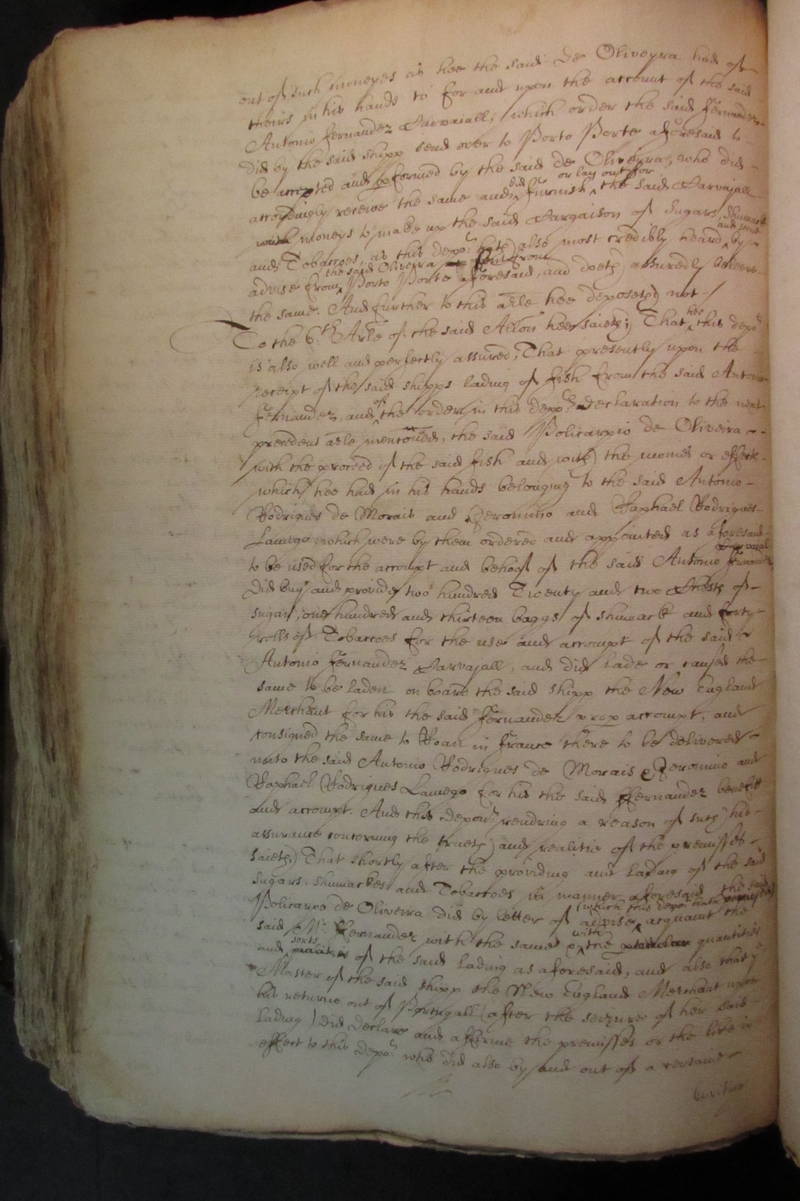 out of such moneyes as hee the said de Oliveyra had of
theirs in his hands to for and upon the account of the said
Antonio Fernandez Carvajall, which order the said Fernandez
did by the said shipp send over to Porto Porte aforesaid to
be accepted and performed by the said de Oliveyra, who did
accordingly receive the same and did furnish or lay out for the said Carvajall
moneys to make up the said Cargaison of Sugars, Shumack
and Tobaccoes, as this depot hath also most credibly heard and seene by
advise from the said Oliveira Porto Porte aforesaid, and doeth assuredly beleeve
the same. And further to this arle hee deposeth not./
To the 6th Arle of the said Allon hee saieth, That hee this depot
is also well and perfectly assured, That presently upon the
receipt of the said shipps lading of fish from the said Antonio
Fernandez, and of the order in this depots declaration to the next
precedent arle mentioned, the said Policarpio de Oliveira
with the proceed of the said fish and with the monies or effects
which hee had in his hands belonging to the said Antonio
Rodrigues de Morais and Jeronimo and Raphael Rodrigues
Lamego which were by them ordered and appointed as aforesaid
to be used for the accompt and behoof of the said Antonio Fernandez Carvajall
did buy and provide two hundred Twenty and two Chests of
sugar, one hundred and thirteen baggs of shumack and forty
rolls of Tobaccoes for the use and accompt of the said
Antonio Fernandez Carvajall, and did lade or caused the
same to be laden on board the said shipp the New England
Merchant for his the said Fernandez accompt, and
consigned the same to Roan in France there to be delivered
unto the said Antonio Rodrigues de Morais Jeronimo and
Raphael Rodrigues Lamego for his the said Fernandez benefit
and accompt. And this deponent rendring a reason of such his
assurance concerning the trueth and realitie of the premisses
saieth That shortly after the providing and lading of the said
sugars, shumackes and Tobaccoes in manner aforesaid the said
Policarpo de Oliveira did by letter of advise (which this depot hath acquaint the
said Mr Fernandez with the same with the quantities
and sorts of the said lading as aforesaid, and also that ye
Master of the said shipp the New England Merchant upon
his returne out of Portugall (after the seizure of her said
lading) did declare and affirme the premisses or the like in
effect to this depot who did also by and out of a